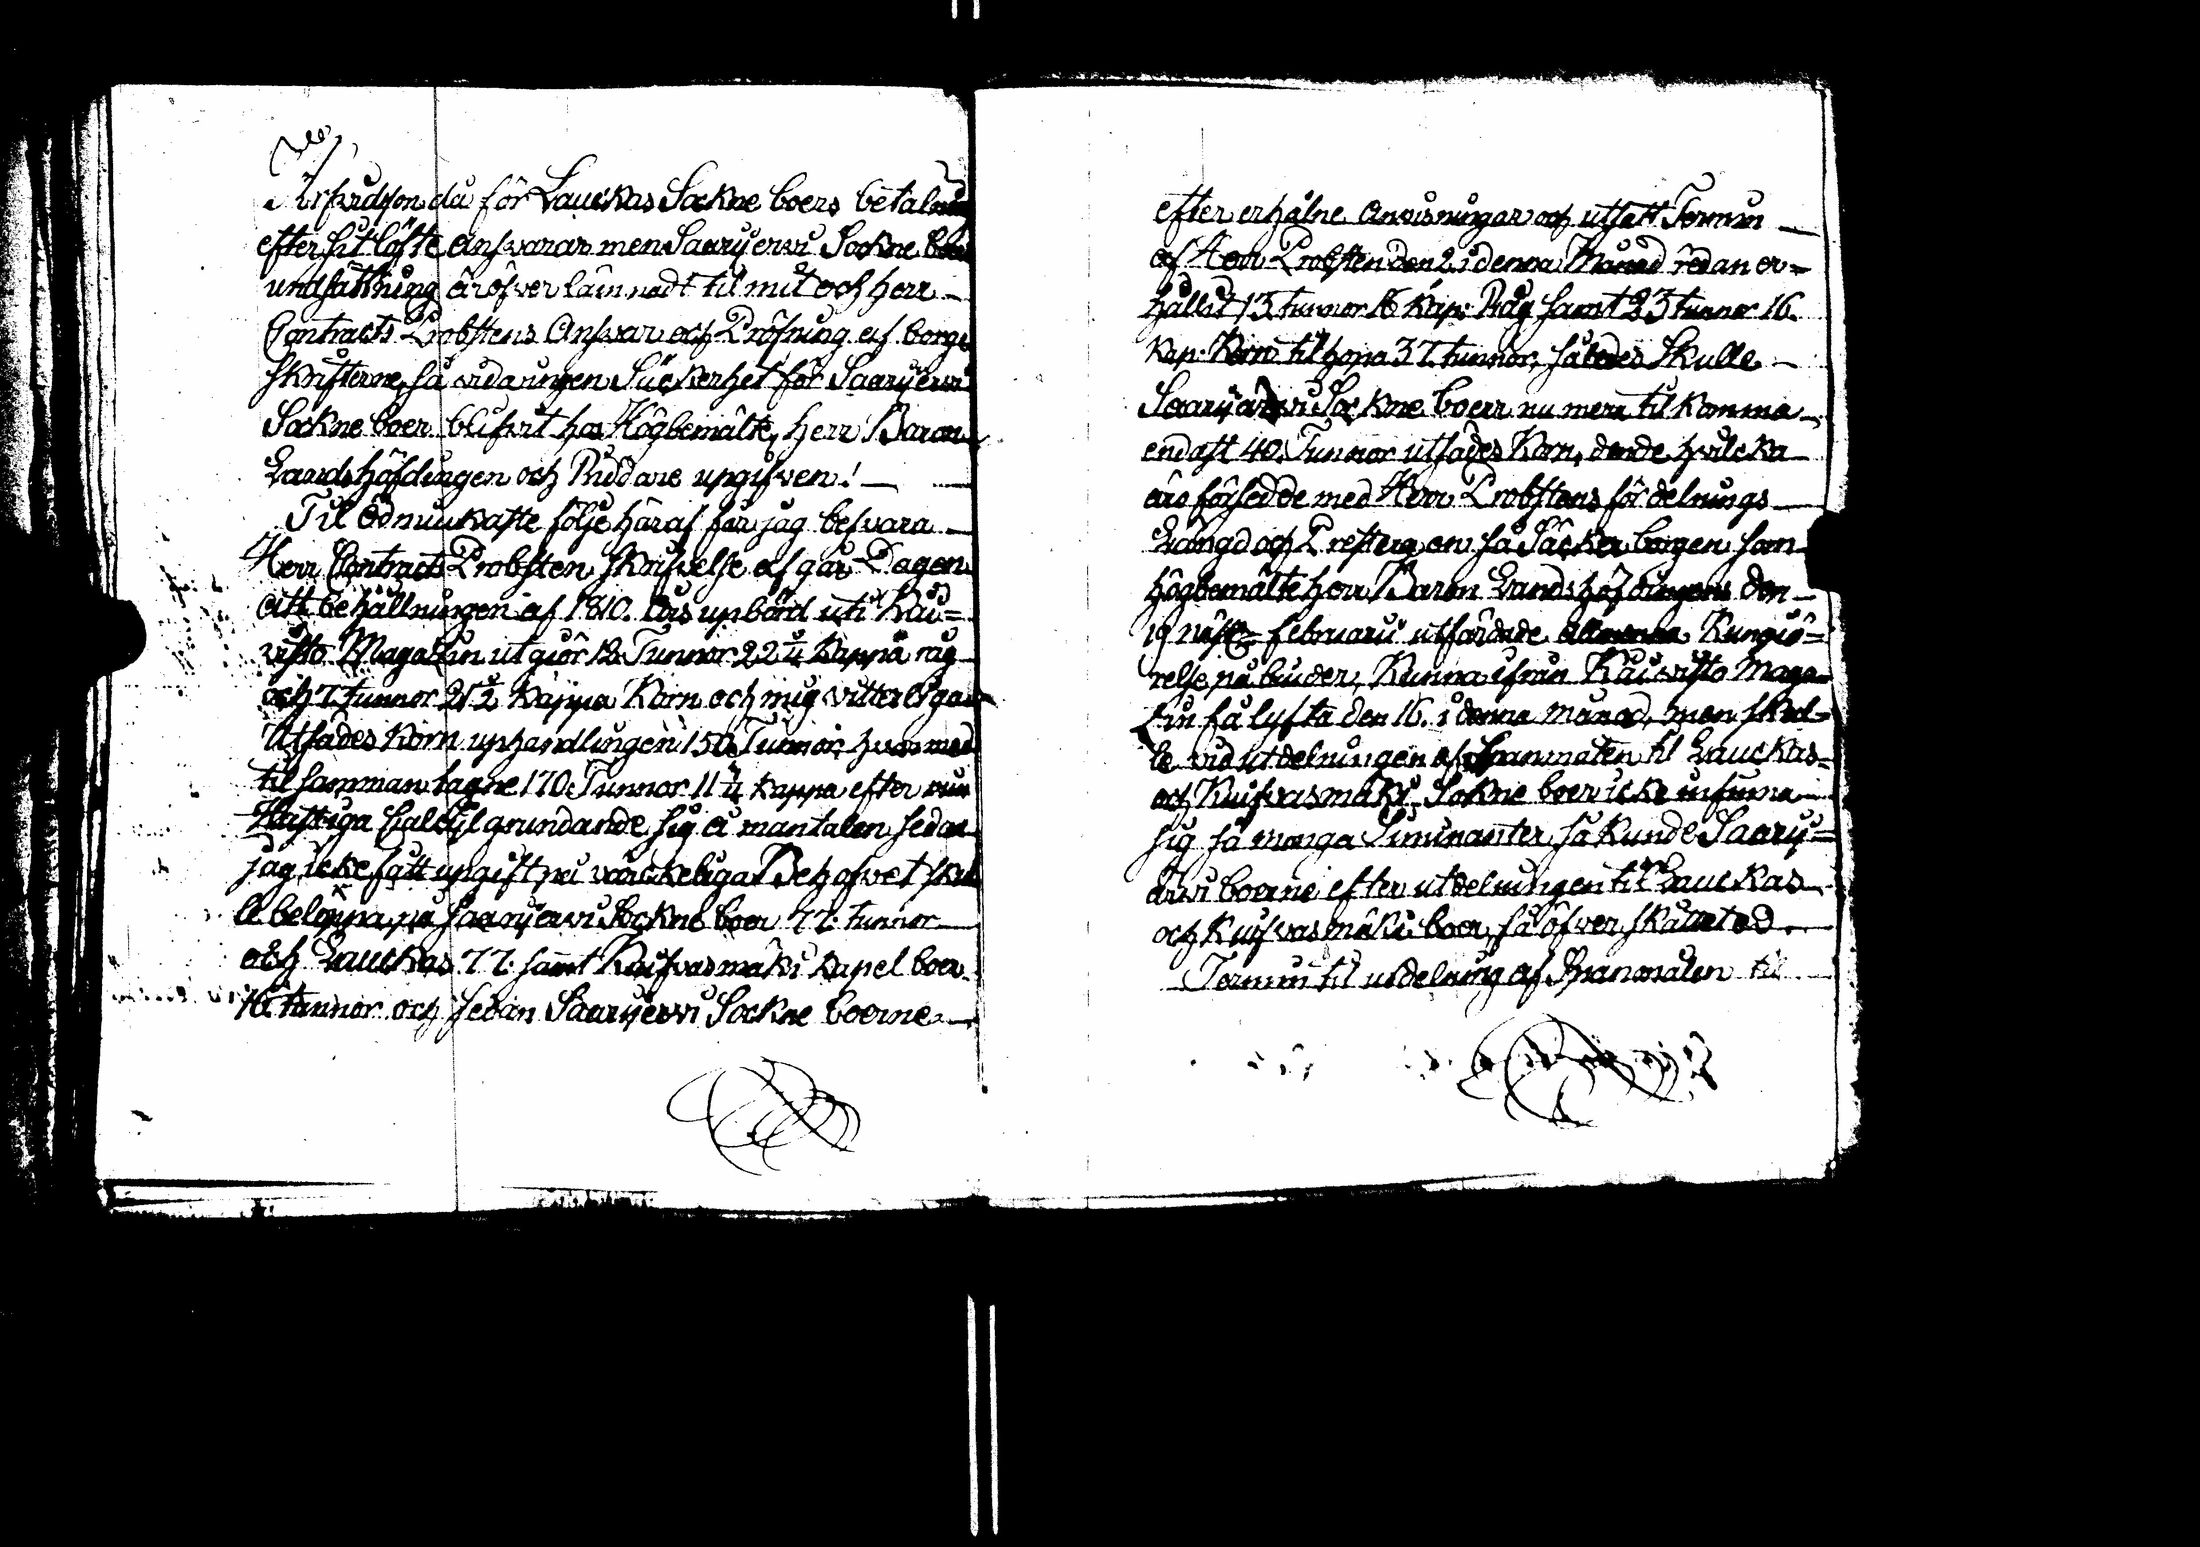 Arfvidson då för Lauckas Sockne boers betalning
efter sit löfte answarar men Saaryerwi Sockne boers
undsättning är öfverlämnadt til mit och herr
Contracts Probstens Answar och Pröfning af borgs
skrifterne, så vida ingen Säkerhet för Saaryerwi
Sockne boer blifvit hos Högbemälte, herr Baron
Landshöfdingen och Riddare upgifven! —
Til Ödmiukaste följe häraf får jag besvara
Herr Contracts Probsten skrifvelse af går Dagen
att behållningen af 1810. års upbörd uti Kui=
visto Magazin utgiör 12 Tunnor 22 Kappa råg
och 7. tunnor 21½ kappa Korn och mig vitterligan
Utsädes Korn uphandlingen 150. Tunnor, hvarmed
til samman tagne 170. Tunnor 11 kappa efter min
Hastiga Calcyl grundande sig å mantalen sedan
jag icke fått upgift på värckeliga Behofvet skul
le belöppa på Saaryerwi Sockne boer 77. tunnor
och Lauckas 77. samt Kuifvasmäki kapel boer
16. tunnor och sedan Saaryerwi Sockne boerne
efter erhålne anvisningar och utsatt Termin
af Herr Probsten den 2. i denna Månad redan er=
hållit 13 tunnor 16 Kap: Råg samt 23 tunnor 16.
Kap: Korn tilhopa 37. tunnor, således skulle
Saaryärwi Sockne boerr nu mera til komma
endast 40. Tunnor utsädes Korn, dem de hvilcka
äro försedde med Herr Probstens för delnings
Längd och Presterna en så Säker borgen som
högbemälte herr Baron Landshöfdingens den
19 näst= februarii utfärdade allmenna Kungiö=
relse på biuder, Kunna ifrån Kuivisto Maga=
zin få lyfta den 16. i denna månad, men skul=
le vid utdelningen af Spanmålen til Lauckas=
och Kuifvasmäki Sockne boer icke infinna
sig så många Liminanter så kunde Saary=
ärwi boerne efter utdelningen til Lauckas
och Kuifvasmäki boer, få öfver skåttet.
Termin til utdelning af Spanmålen til